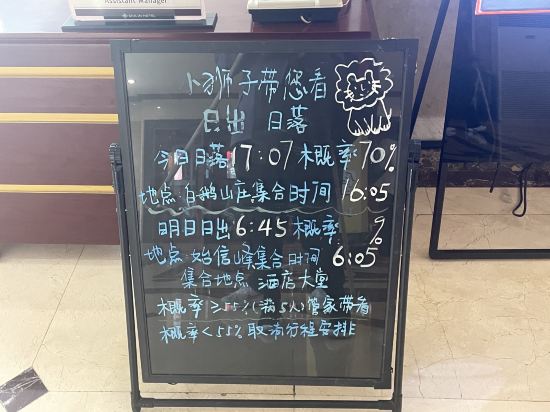 Assistant Manager
小狮子带您看
日出 日落
今日日落17:07概率70%
地点:白鹅山庄集合时间 16:05
明日日出6:45概率 %
地点:始信峰集合时间 6:05
集合地点 酒店大堂
概率≥55%(满5人)管家带看
概率<55% 取消行程安排